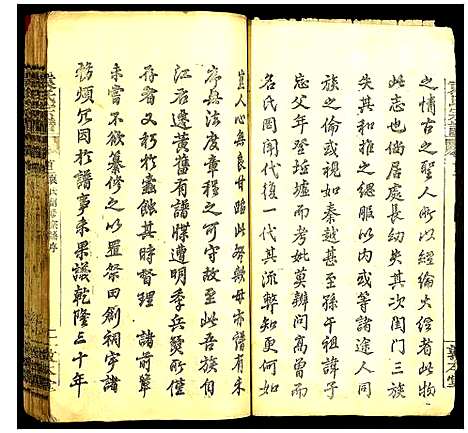 之情古之聖人所以經綸大經者此物
此志也倘居處長幼失其次閨門三族
失其和於是之緦服以內或等諸途人同
族之倫或視如秦越甚至孫午祖諱子
忘父年登壠墟而考妣莫辨問高曾而
名氏罔聞代復一代其流弊知曷如
豈人心無良甘蹈此咎與毋亦譜有未
尋法度章程之可守故至此吾族自
江右遷黃舊有譜牒遭明季兵燹所僅
存者又朽於蠹蝕其時督理 諸前輩
未嘗不欲纂修之以置祭田創祠宇諸
務煩冗因於譜事未果議乾隆三十年
袁氏宗譜
敦本堂